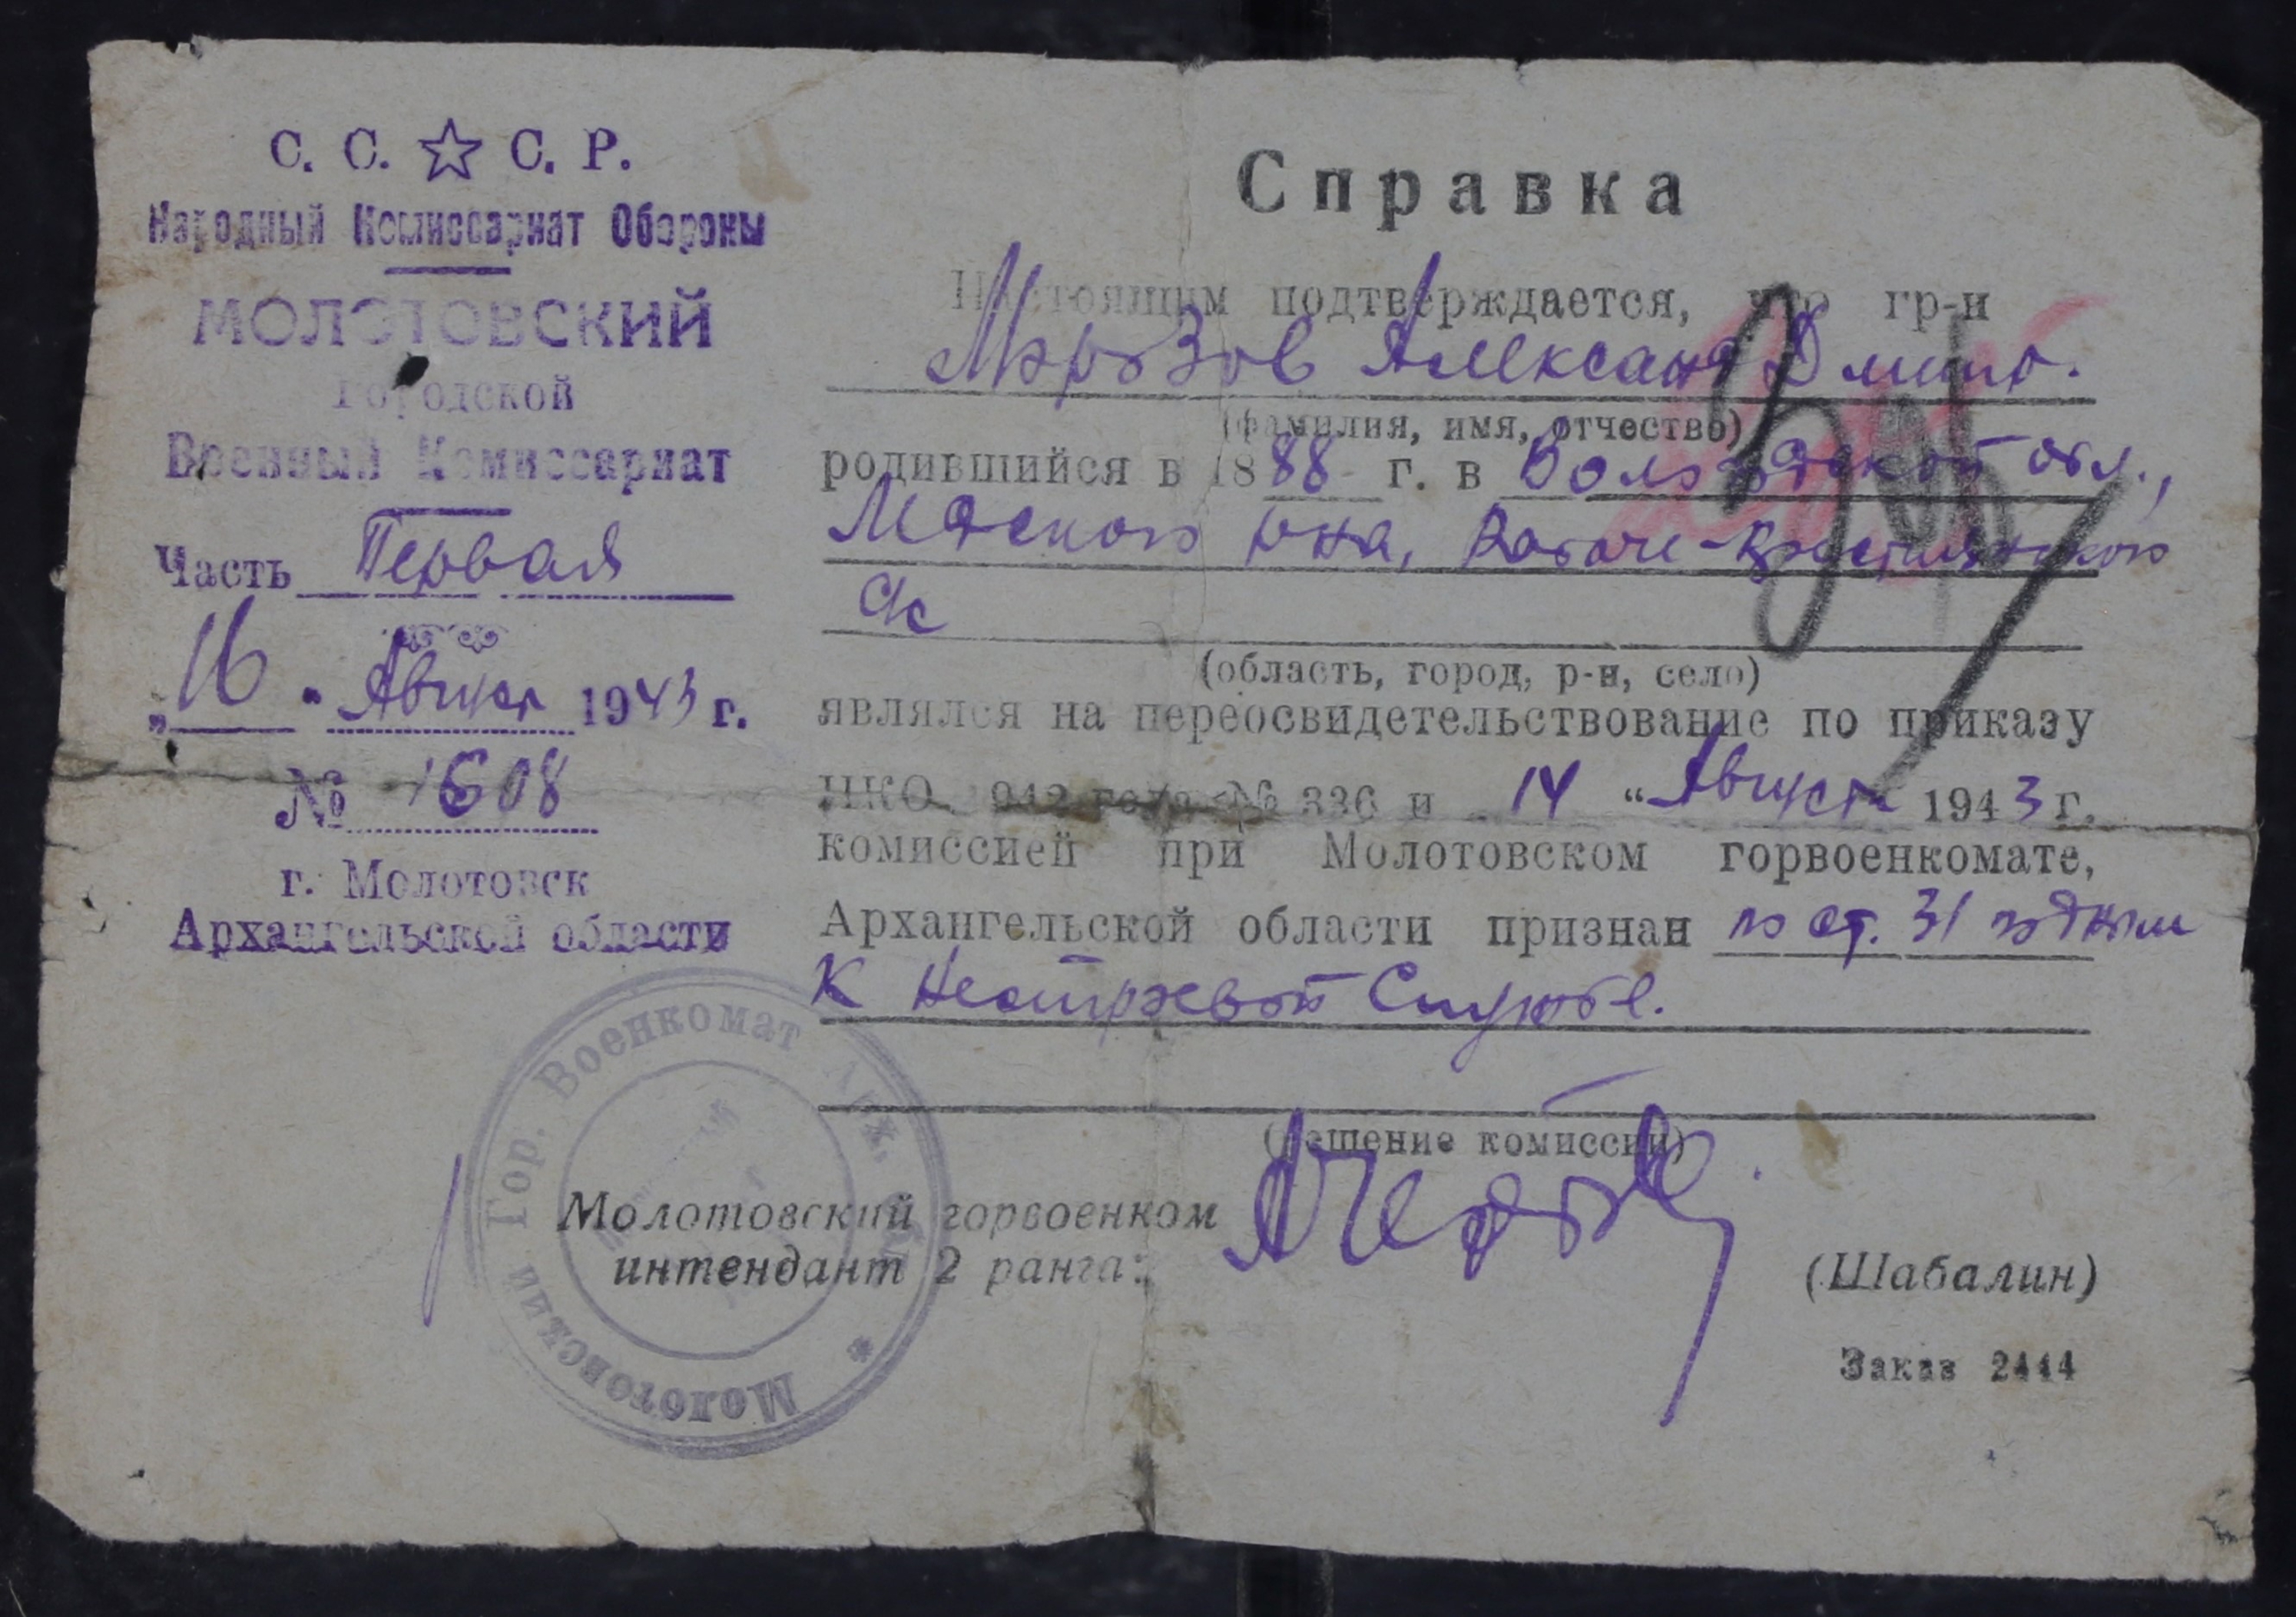 С. С. ☆ С. Р.
Народный Комиссариат Обороны
МОЛОТОВСКИЙ
Городской
Военный Комиссариат
Часть Первая
„16“ Август 1943 г.
№ 1608
г. Молотовск
Архангельской области
Справка
Настоящим подтверждается, что гр-н
Морозов Александ Дмитр.
(фамилия, имя, отчество)
родившийся в 1888 г. в Вологодской обл.,
р-на, Рабоче-Крестьянского
с/с
(область, город, р-н, село)
являлся на переосвидетельствование по приказу
НКО 942 года № 336 и 14 “ Август 1943 г.
комиссией при Молотовском горвоенкомате,
Архангельской области признан по ст. 31 годным
к нестроевой службе.
(решение комиссии)
Молотовский горвоенком
интендант 2 ранга:
(Шабалин)
Заказ 2444
Молотовский Гор. Военкомат Арх.